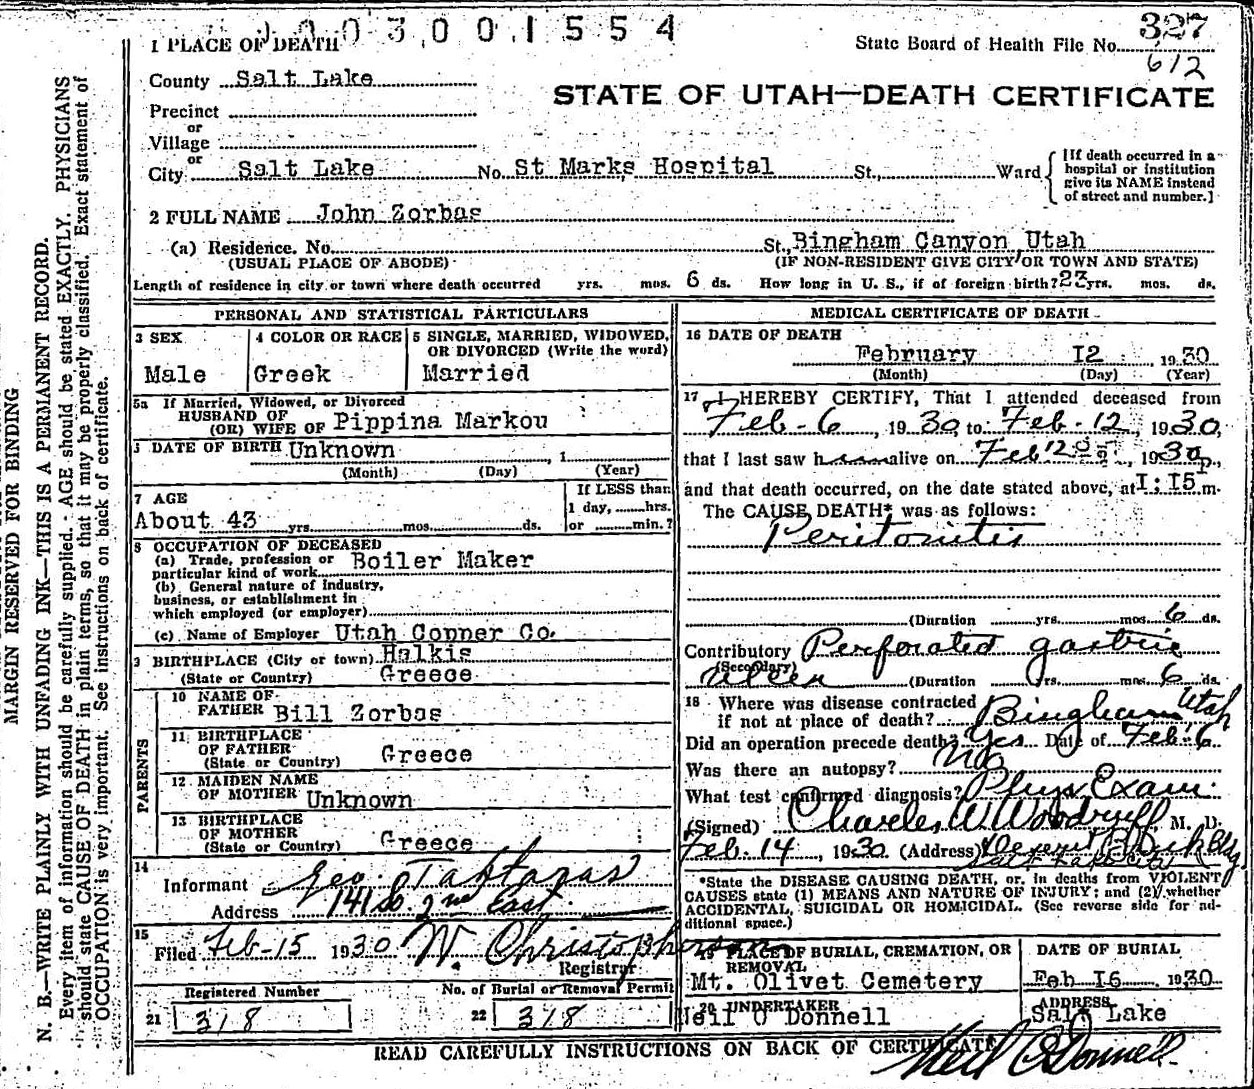 003001554
1 PLACE OF DEATH
State Board of Health File No. 327
612
County Salt Lake
STATE OF UTAH—DEATH CERTIFICATE
Precinct
or
Village
or
City Salt Lake No. St Marks Hospital St., Ward
[If death occurred in a
hospital or institution
give its NAME instead
of street and number.]
2 FULL NAME John Zorbas
(a) Residence, No. St., Bingham Canyon Utah
(USUAL PLACE OF ABODE) (IF NON-RESIDENT GIVE CITY OR TOWN AND STATE)
Length of residence in city or town where death occurred yrs. mos. 6 ds. How long in U. S., if of foreign birth? 23 yrs. mos. ds.
PERSONAL AND STATISTICAL PARTICULARS
3 SEX
Male
4 COLOR OR RACE
Greek
5 SINGLE, MARRIED, WIDOWED,
OR DIVORCED (Write the word)
Married
5a If Married, Widowed, or Divorced
HUSBAND OF
(OR) WIFE OF Pippina Markou
DATE OF BIRTH Unknown , 1
(Month) (Day) (Year)
7 AGE
About 43 yrs. mos. ds.
If LESS than
1 day, hrs.
or min.?
8 OCCUPATION OF DECEASED
(a) Trade, profession or
particular kind of work Boiler Maker
(b) General nature of industry,
business, or establishment in
which employed (or employer)
(c) Name of Employer Utah Copper Co.
9 BIRTHPLACE (City or town) Halkis
(State or Country) Greece
PARENTS
10 NAME OF
FATHER Bill Zorbas
11 BIRTHPLACE
OF FATHER
(State or Country) Greece
12 MAIDEN NAME
OF MOTHER Unknown
13 BIRTHPLACE
OF MOTHER
(State or Country) Greece
14
Informant Geo.
Address 141 So. 2nd East
15
Filed Feb-15 1930 W. Christopherson
Registrar
Registered Number
21 318
No. of Burial or Removal Permit
22 318
MEDICAL CERTIFICATE OF DEATH
16 DATE OF DEATH
February 12 1930
(Month) (Day) (Year)
17 I HEREBY CERTIFY, That I attended deceased from
Feb-6, 1930 to Feb-12, 1930,
that I last saw him alive on Feb 12, 1930,
and that death occurred, on the date stated above, at 1:15 p m.
The CAUSE DEATH* was as follows:
Peritonitis
(Duration yrs. mos. 6 ds.
Contributory Perforated gastric
(Secondary)
ulcer (Duration yrs. mos. 6 ds.
18 Where was disease contracted
if not at place of death? Bingham Utah
Did an operation precede death? Yes Date of Feb-6
Was there an autopsy? No
What test confirmed diagnosis? Phys Exam.
(Signed) Charles W Woodruff, M. D.
Feb. 14, 1930 (Address) Deseret Bk Bldg
Salt Lake City
*State the DISEASE CAUSING DEATH, or, in deaths from VIOLENT
CAUSES state (1) MEANS AND NATURE OF INJURY; and (2) whether
ACCIDENTAL, SUICIDAL OR HOMICIDAL. (See reverse side for ad-
ditional space.)
19 PLACE OF BURIAL, CREMATION, OR
REMOVAL
Mt. Olivet Cemetery
DATE OF BURIAL
Feb 16 1930
20 UNDERTAKER
Neil O Donnell
ADDRESS
Salt Lake
Neil O'Donnell.
READ CAREFULLY INSTRUCTIONS ON BACK OF CERTIFICATE
MARGIN RESERVED FOR BINDING
N. B.—WRITE PLAINLY WITH UNFADING INK—THIS IS A PERMANENT RECORD.
Every item of information should be carefully supplied. AGE should be stated EXACTLY. PHYSICIANS
should state CAUSE OF DEATH in plain terms, so that it may be properly classified. Exact statement of
OCCUPATION is very important. See instructions on back of certificate.